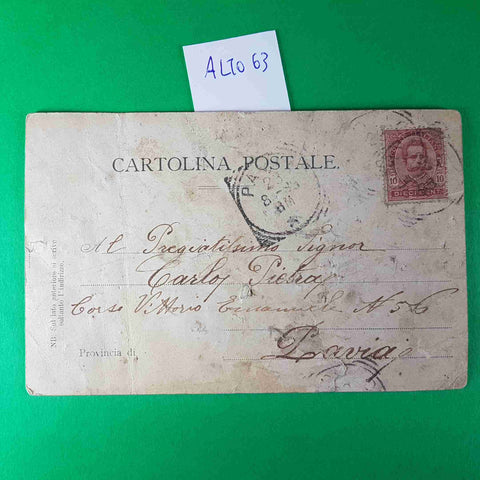 ALTO 63
CARTOLINA POSTALE.
PA
8
10 10
DIECI
Al Pregiatissimo Signor
Carlo Pietra
Corso Vittorio Emanuele N 56
Pavia
Provincia di
NB. Sul lato anteriore si scrive
soltanto l'indirizzo.